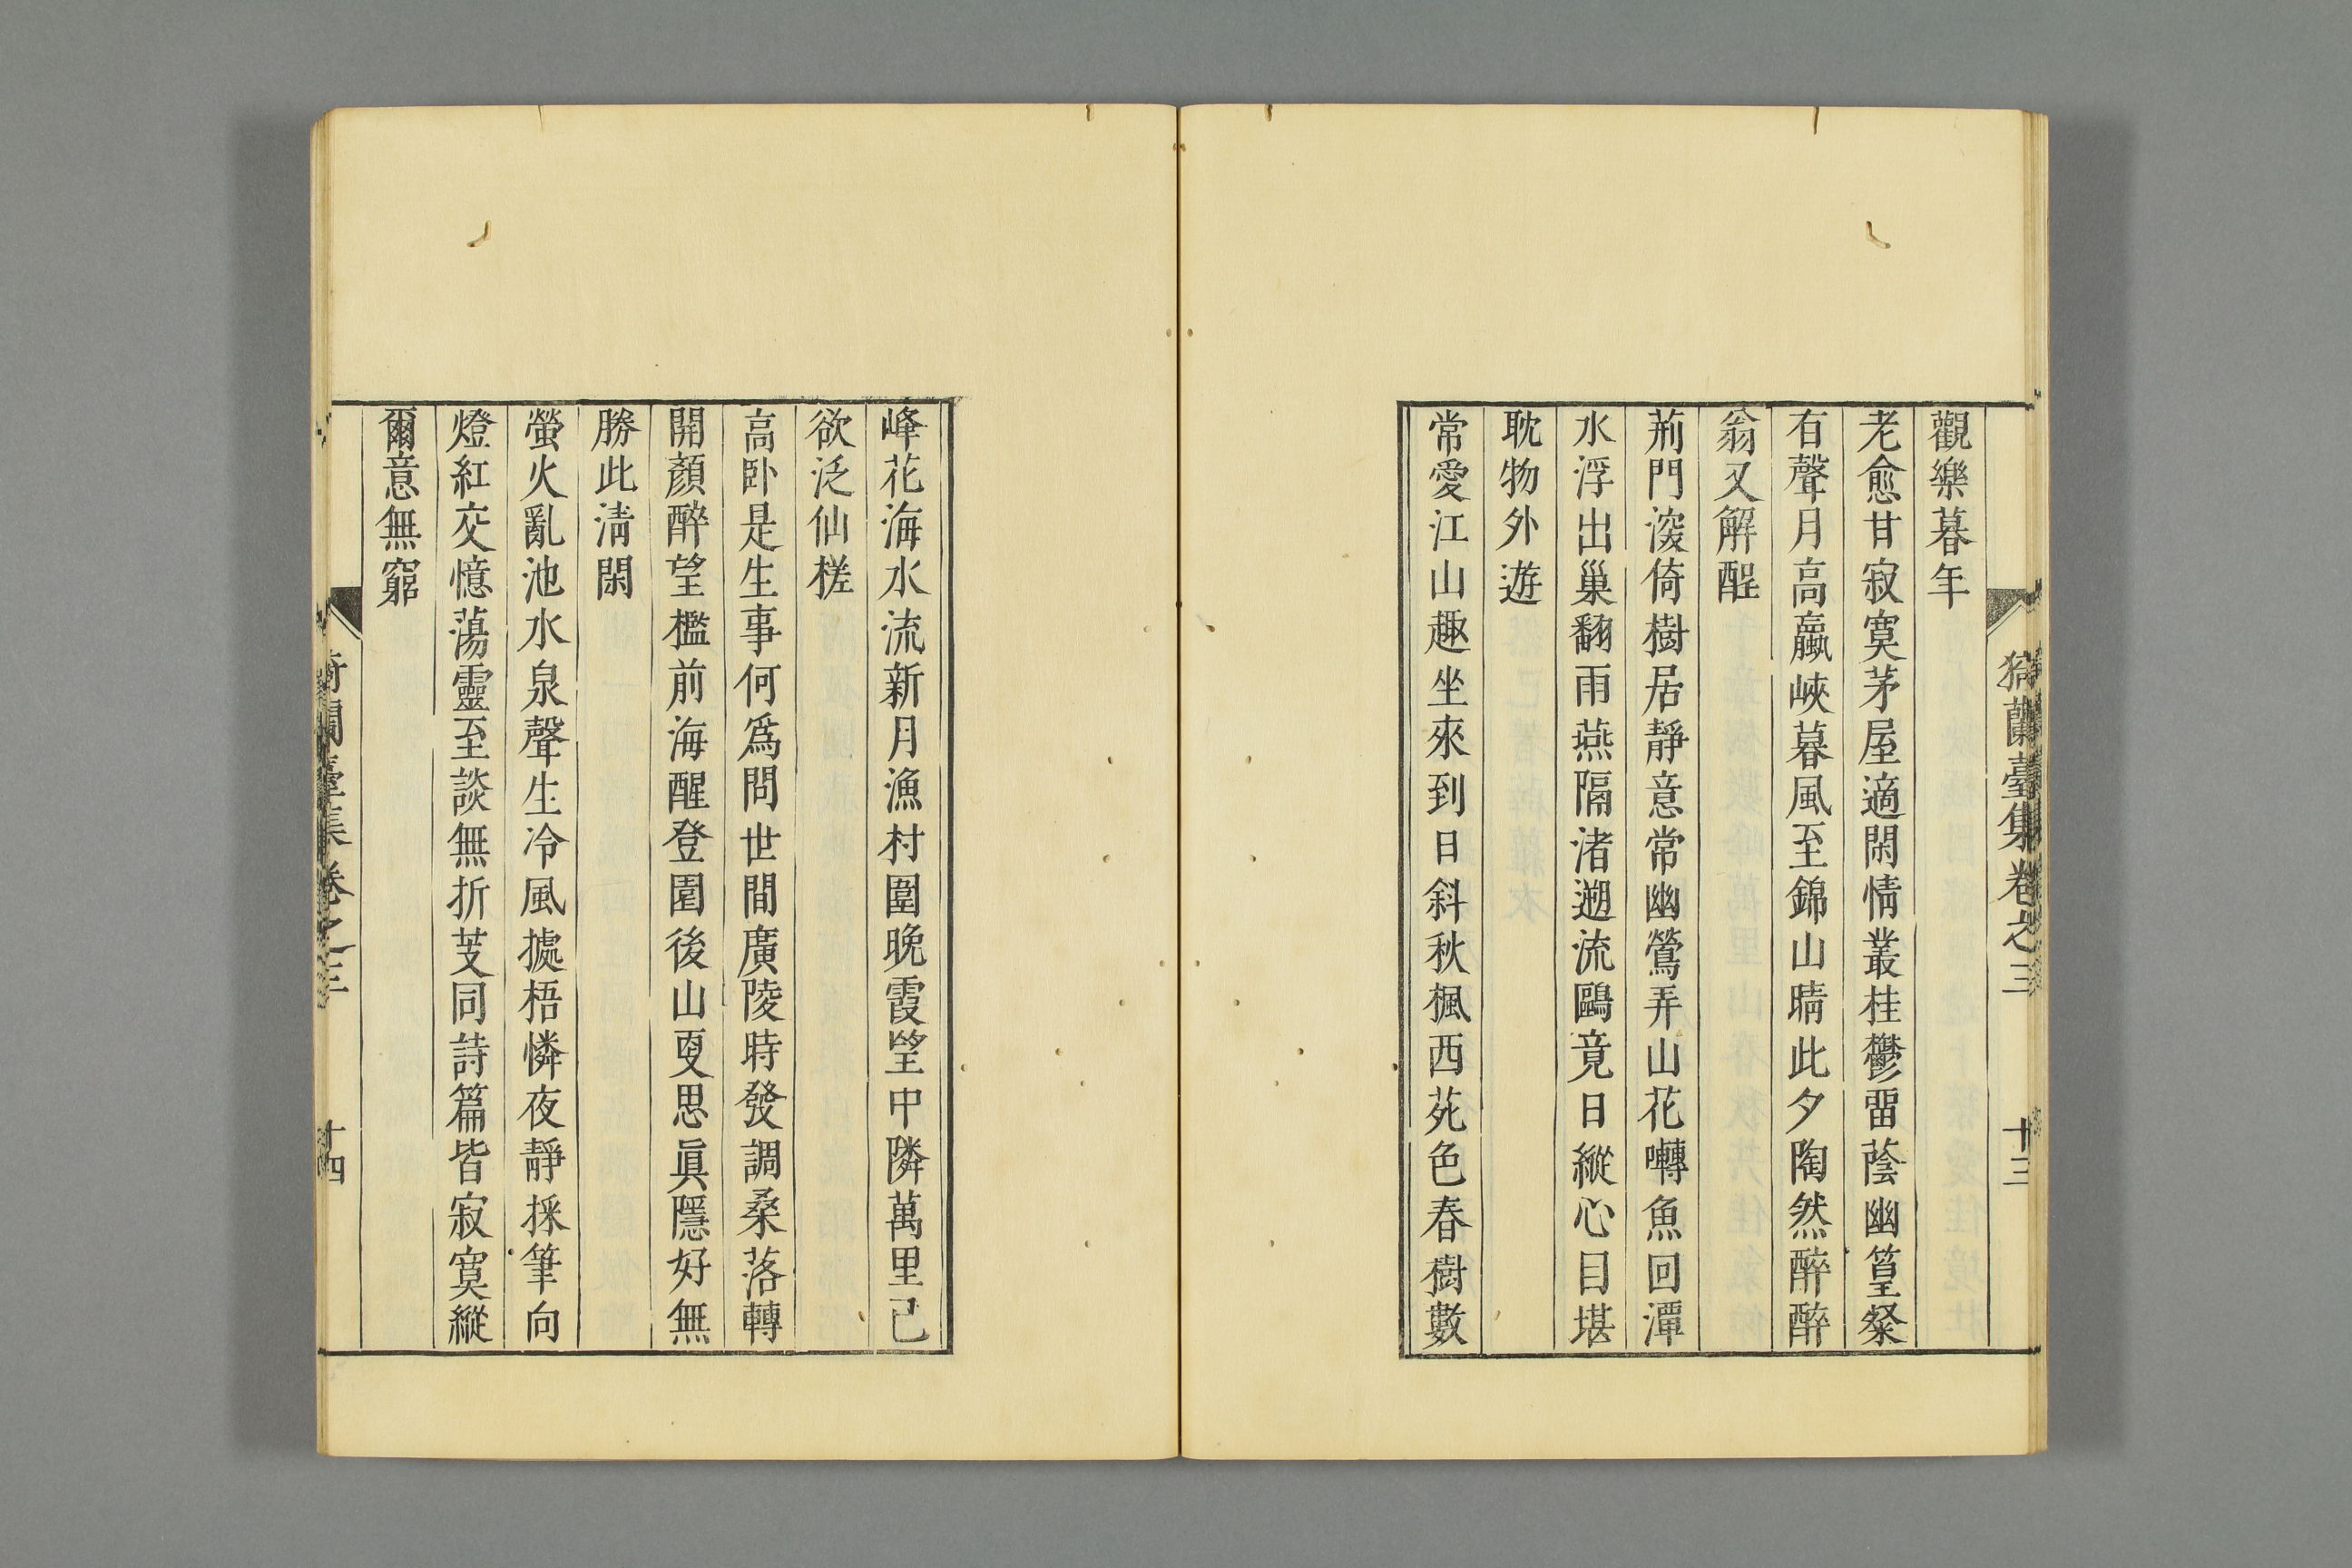 觀樂暮年
老愈甘寂寞茅屋適閑情叢桂鬱畱蔭幽篁粲
右聲月高羸峽暮風至錦山晴此夕陶然醉醉
翁又解酲
荊門深倚樹居靜意常幽鶯弄山花囀魚回潭
水浮出巢翻雨燕隔渚遡流鷗竟日縱心目堪
耽物外遊
常愛江山趣坐來到日斜秋楓西苑色春樹數
猗蘭臺集卷之三 廿三
峰花海水流新月漁村圍晚霞望中隣萬里己
欲泛仙槎
高卧是生事何爲問世間廣陵時發調桑落轉
開顏醉望檻前海醒登園後山更思眞隱好無
勝此淸閑
螢火亂池水泉聲生冷風據梧憐夜靜採筆向
燈紅交憶蕩靈至談無折芰同詩篇皆寂寞縱
爾意無窮
猗蘭臺集卷之三 廿四